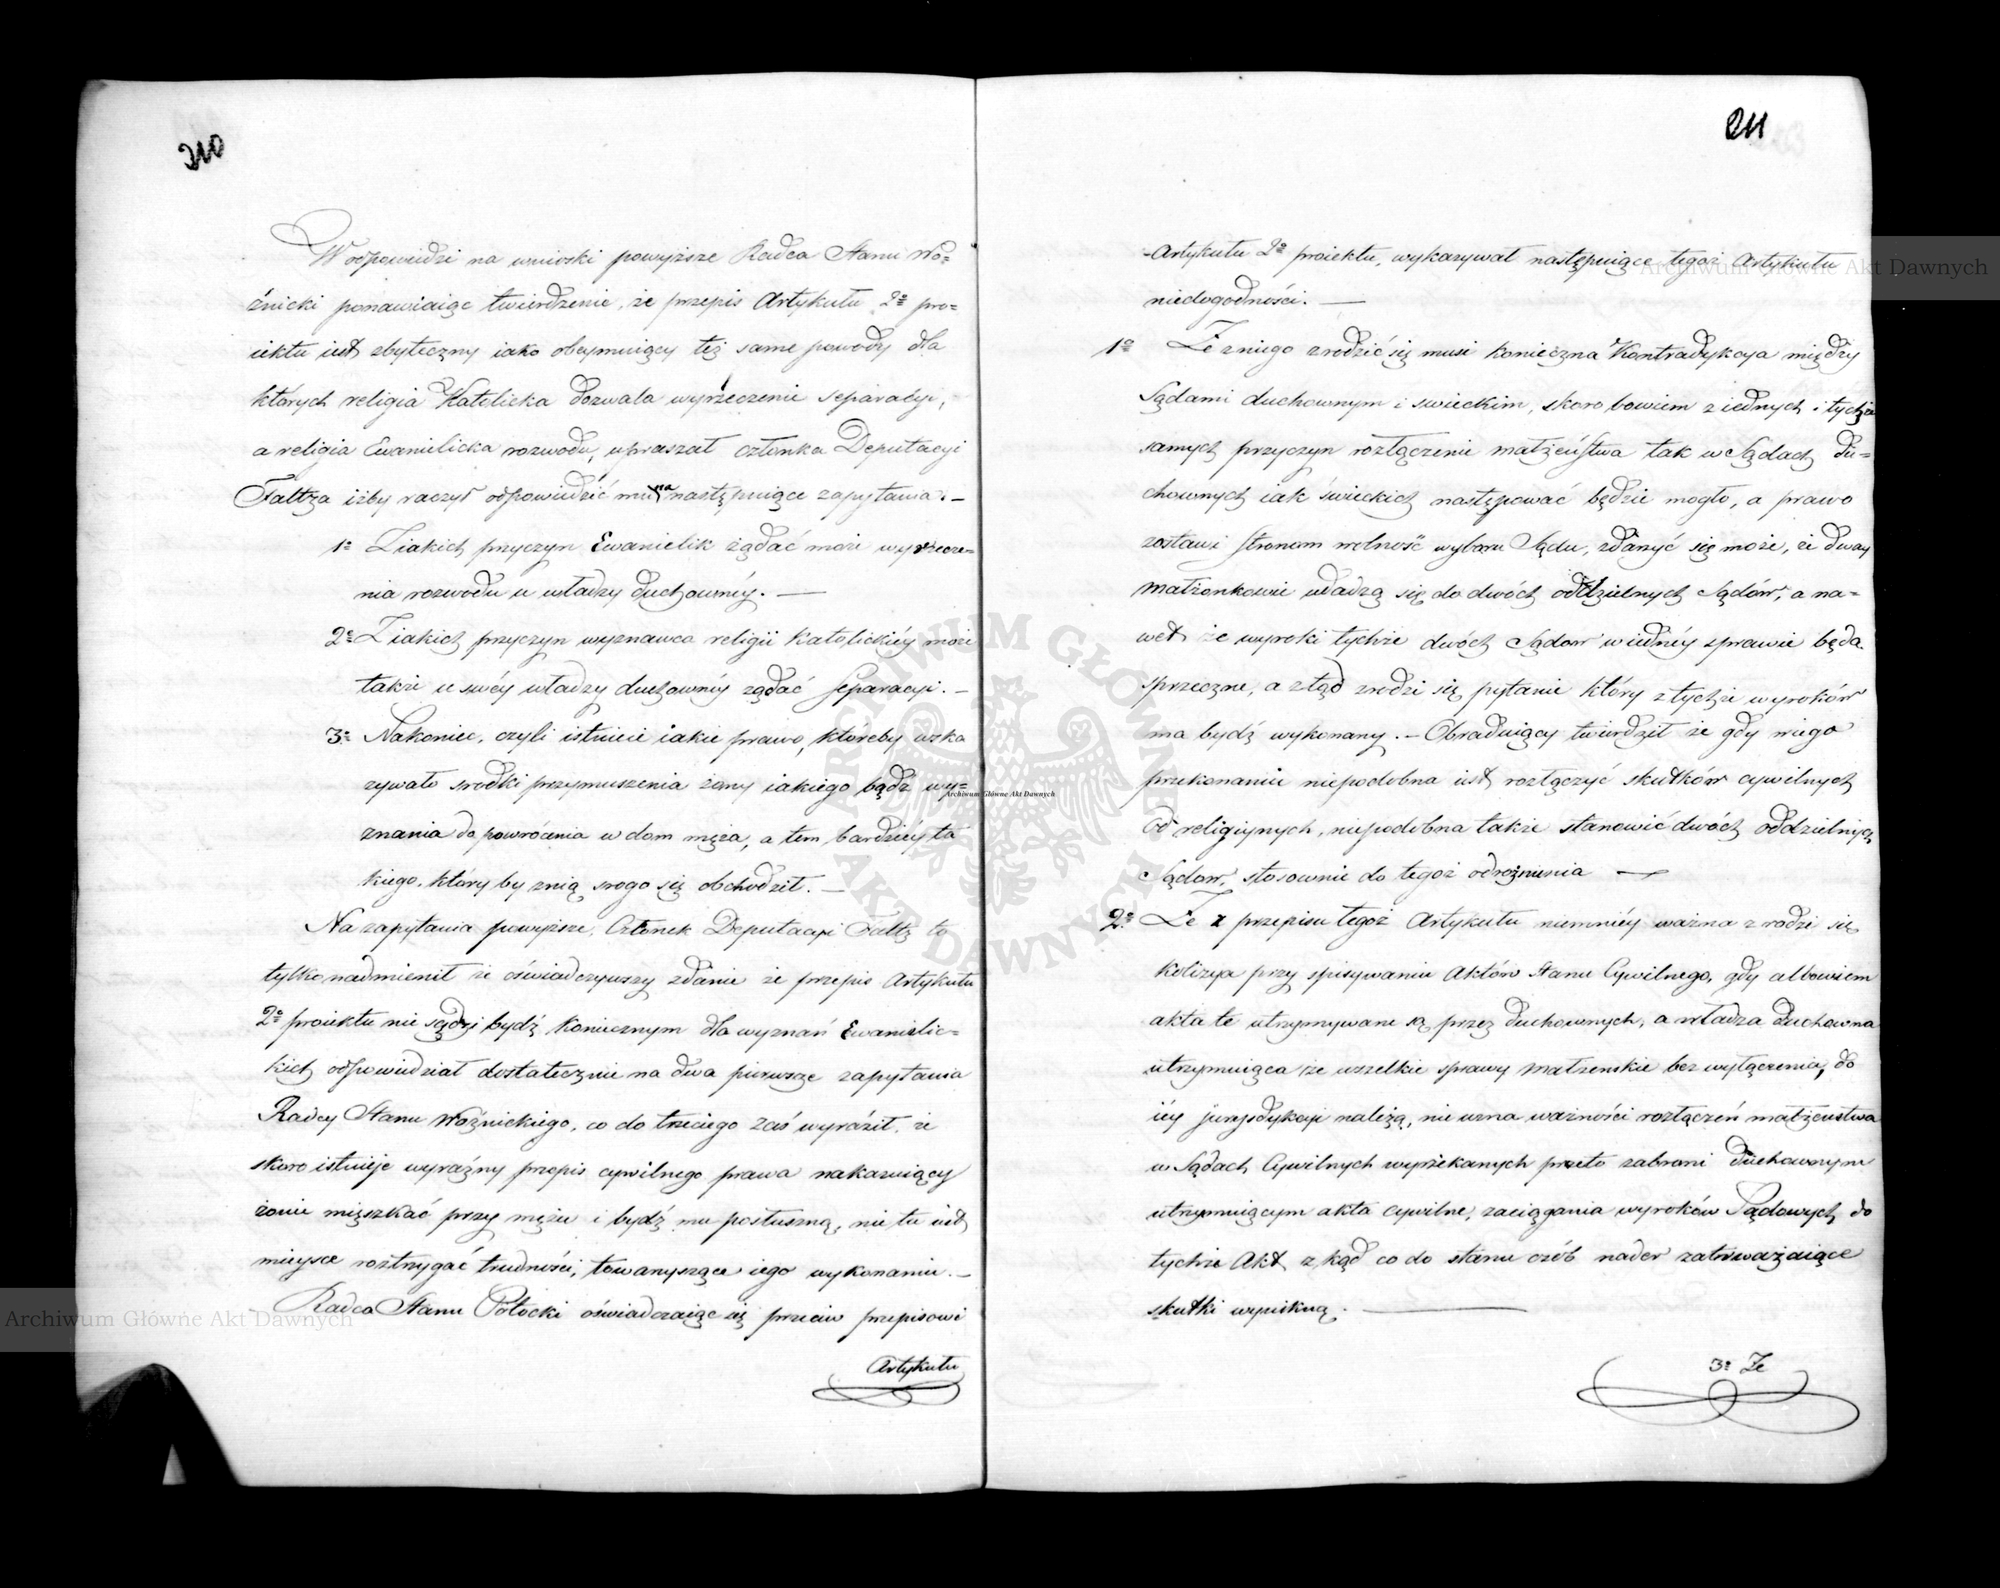 210
W odpowiedzi na wnioski powyższe Radca Stanu Wo=
źnicki ponawiaiąc twierdzenie, że przepis Artykułu 2º pro=
iektu iest zbyteczny iako obeymuiący też same powody dla
których religia Katolicka dozwala wyrzeczenie separacyi,
a religia Ewanielicka rozwodu, upraszał członka Deputacyi
Faltza iżby raczył odpowiedzić mu na następuiące zapytania. –
1º Ziakich przyczyn Ewanielik żądać może wyrzecze=
nia rozwodu u władzy duchownéy. —
2º Ziakich przyczyn wyznawca religii Katolickiéy może
także u swéy władzy duchownéy żądać separacyi. –
3º Nakoniec, czyli istnieie iakie prawo, któreby wska
zywało srodki przymuszenia żony iakiego bądź wy=
znania do powrócenia w dom męża, a tem bardziéy ta
kiego, który by znią srogo się obchodził. —
Na zapytania powyższe, Członek Deputacyi Faltz to
tylko nadmienił że oświadczywszy zdanie że przepis Artykułu
2º proiektu nie sądzi bydź koniecznym dla wyznań Ewanielic=
kich odpowiedział dostatecznie na dwa pierwsze zapytania
Radcy Stanu Woźnickiego, co do trzeciego zaś wyráził, że
skoro istnieje wyraźny przepis cywilnego prawa nakazuiący
żonie mięszkać przy mężu i bydź mu posłuszną, nie tu iest
mieysce roztrzygać trudności, towarzyszące iego wykonaniu. –
Radca Stanu Potocki oświadczaiąc się przeciw przepisowi
Artykułu
211
Artykułu 2º proiektu, wykazywał następuiące tegoż Artykułu
niedogodności. —
1º Że zniego zrodzić się musi konieczna Kontradykcya między
Sądami duchownym i swieckim, skoro bowiem z iednych i tychże
samych przyczyn rozłączenie małżeństwa tak w Sądach du=
chownych iak świeckich następować będzie mogło, a prawo
zostawi stronom wolność wyboru Sądu, zdarzyć się może, że dway
małżonkowie udadzą się do dwóch oddzielnych Sądów, a na=
wet że wyroki tychże dwóch Sądów w iednéy sprawie będą
sprzeczne, a ztąd zrodzi się pytanie który z tychże wyroków
ma bydź wykonany. – Obraduiący twierdził że gdy wiego
przekonaniu niepodobna iest rozłączyć skutków cywilnych
od religiynych, niepodobna także stanowić dwóch oddzielnych
Sądów, stosownie do tegoż odrożnienia —
2º Że z przepisu tegoż Artykułu niemniéy ważna zrodzi się
kolizya przy spisywaniu Aktów Stanu Cywilnego, gdy albowiem
akta te utrzymywane są przez duchownych, a władza duchowna
utrzymuiąca że wszelkie sprawy małżenskie bez wyłączenia, do
iéy jurysdykcyi należą, nie uzna ważności rozłączeń małżeństwa
w Sądach Cywilnych wyrzekanych przeto zabroni duchownym
utrzymuiącym akta cywilne, zaciągania wyroków Sądowych do
tychże Akt, z kąd co do stanu osób nader zatrważaiące
skutki wynikną. —
3º Że
Archiwum Główne Akt Dawnych
Archiwum Główne Akt Dawnych
Archiwum Główne Akt Dawnych
ARCHIWUM GŁÓWNE AKT DAWNYCH